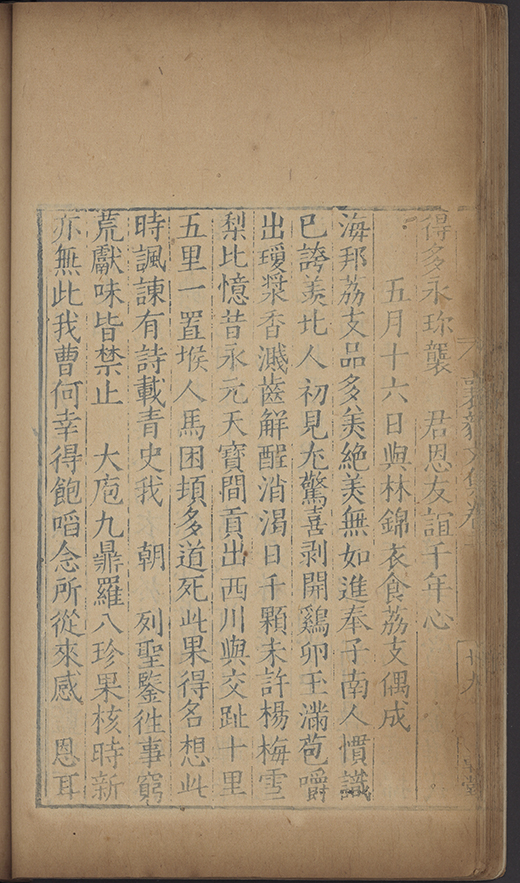 得多永珎襲　君恩友誼千年心
五月十六日與林錦衣食荔支偶成
海邦荔支品多美絶美無如進奉子南人慣識
已誇羡北人初見尢驚喜剥開鷄卵玉滿苞嚼
出瓊漿香濺齒解酲消渴日千顆未許楊梅雪
梨比憶昔永元天寶間貢出西川與交趾十里
五里一置堠人馬困頓多道死此果得名想此
時諷諫有詩載青史我　朝　列聖鑒徃事窮
荒獻味皆禁止　大庖九鼎羅八珍果核時新
亦無此我曹何幸得飽啗念所從來感　恩耳